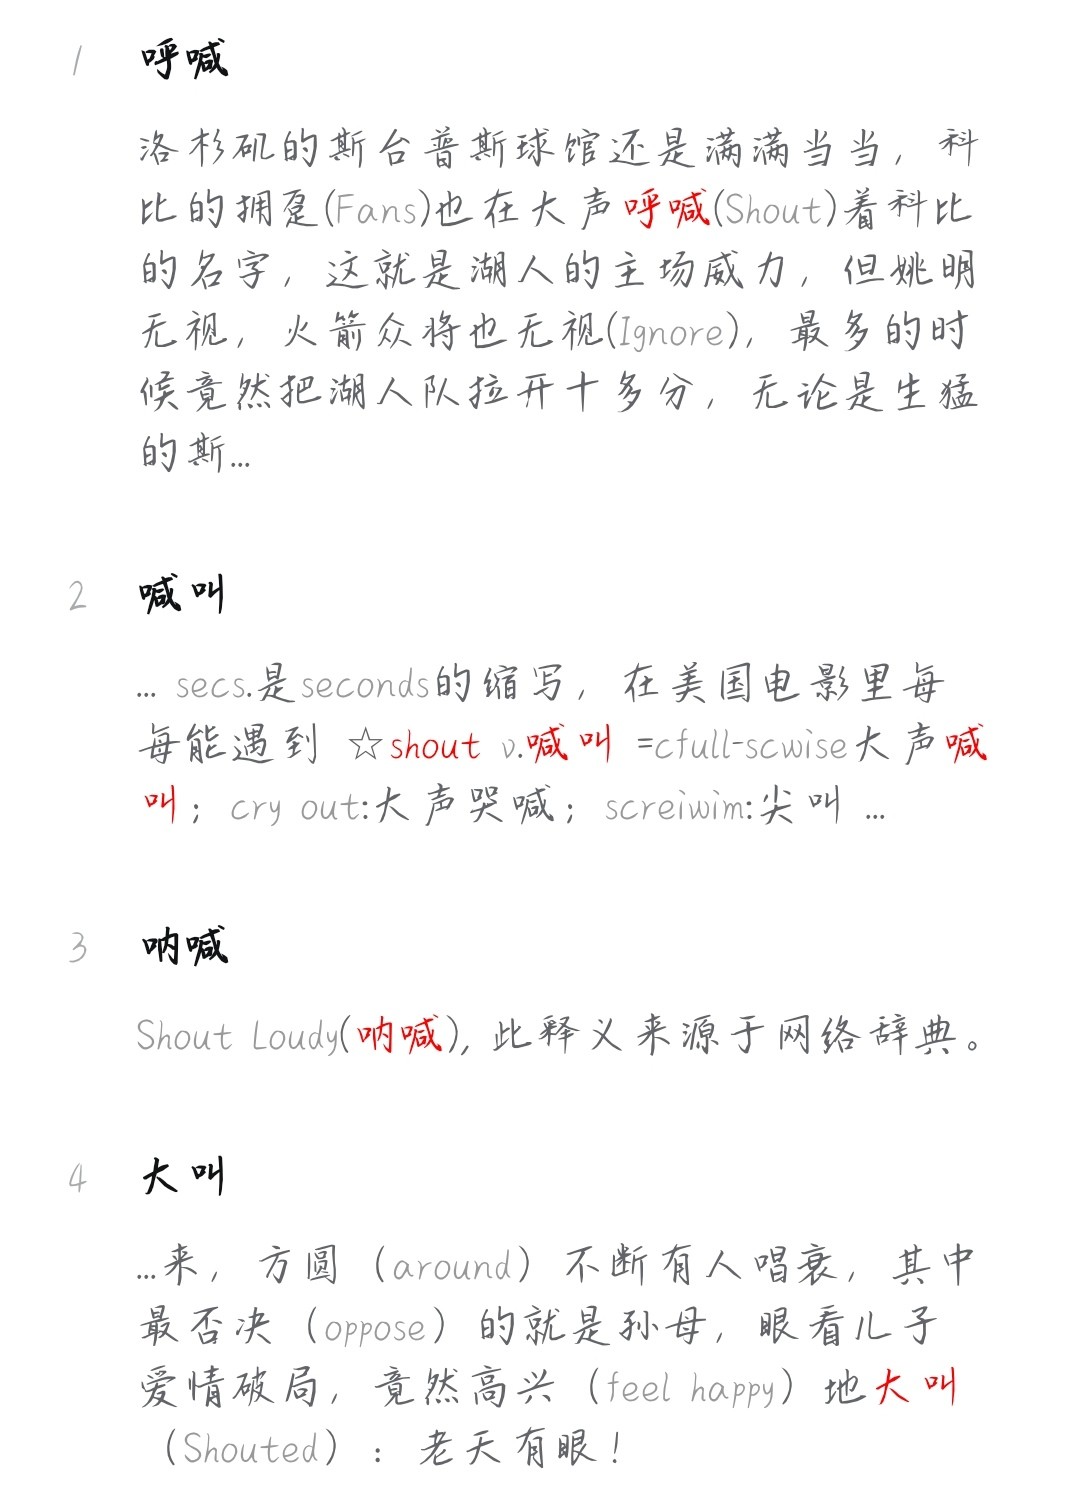 1 呼喊
洛杉矶的斯台普斯球馆还是满满当当，科
比的拥趸(Fans)也在大声呼喊(Shout)着科比
的名字，这就是湖人的主场威力，但姚明
无视，火箭众将也无视(Ignore)，最多的时
候竟然把湖人队拉开十多分，无论是生猛
的斯...
2 喊叫
... secs.是seconds的缩写，在美国电影里每
每能遇到 ☆shout v.喊叫 =cfull-scwise大声喊
叫；cry out:大声哭喊；screiwim:尖叫 ...
3 呐喊
Shout Loudy(呐喊), 此释义来源于网络辞典。
4 大叫
...来，方圆（around）不断有人唱衰，其中
最否决（oppose）的就是孙母，眼看儿子
爱情破局，竟然高兴（feel happy）地大叫
（Shouted）：老天有眼！